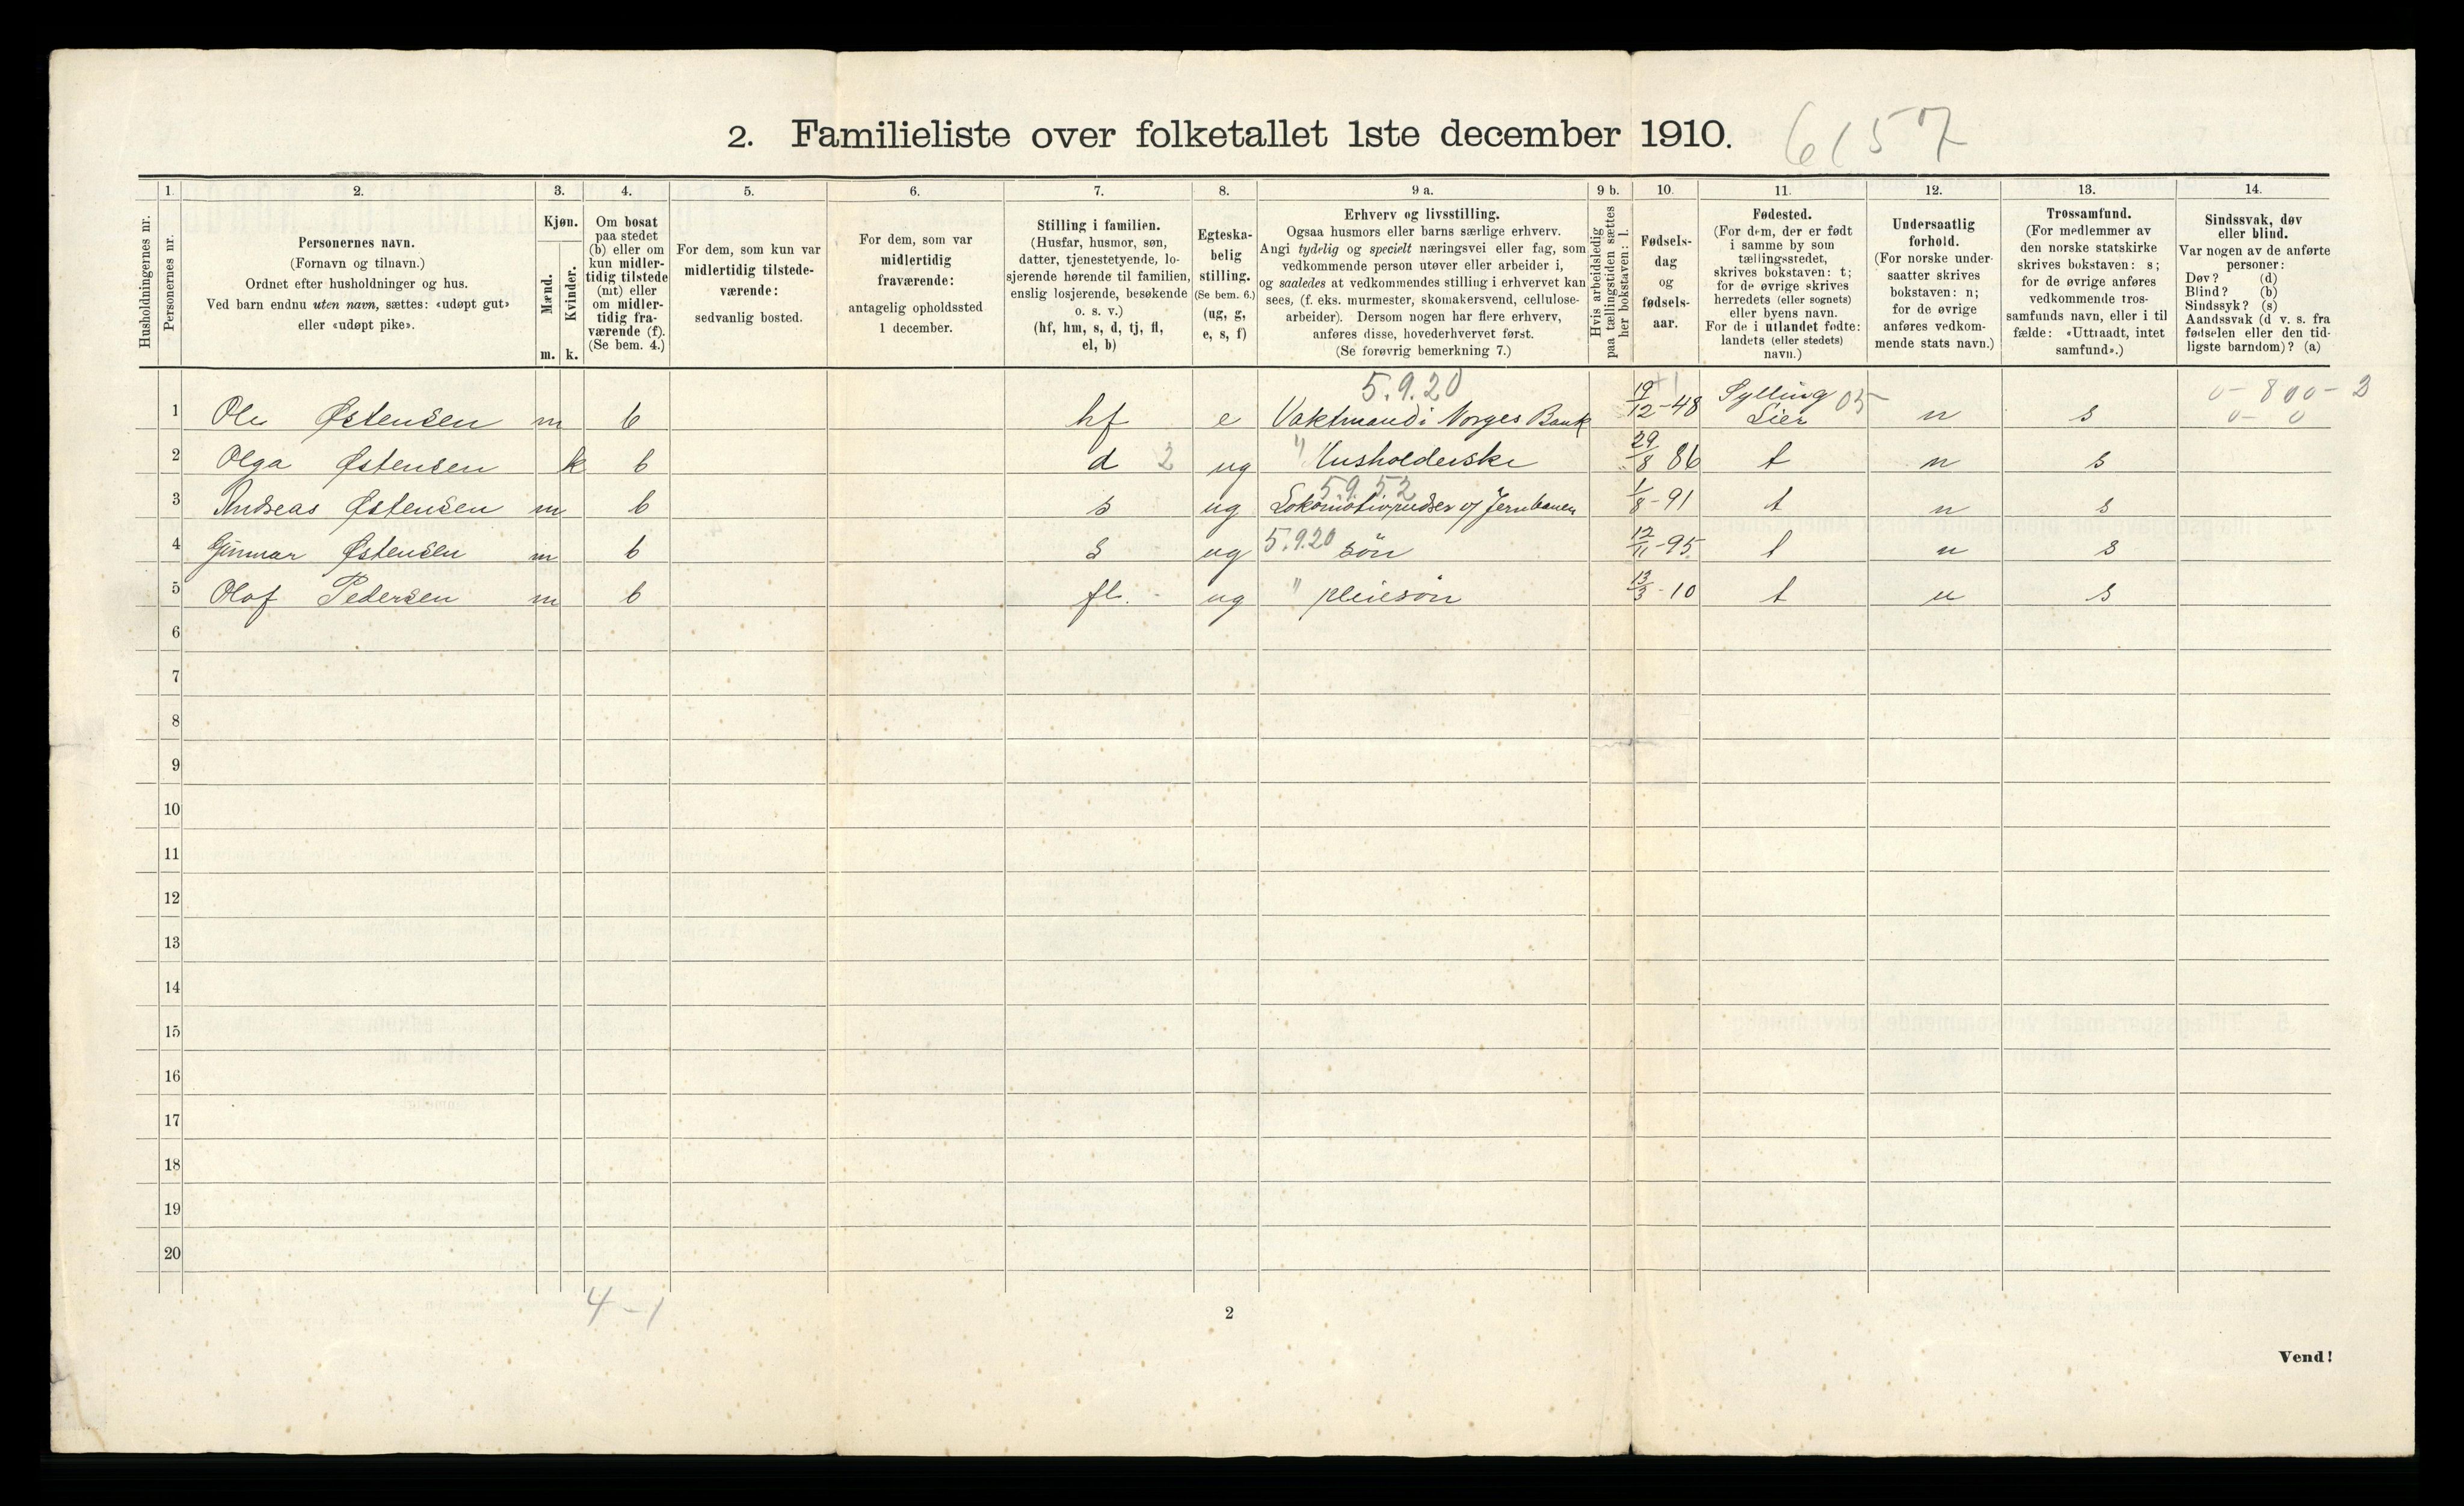 2. Familieliste over folketallet 1ste december 1910.
6157
Husholdningernes nr.
1.
Personernes nr.
2.
Personernes navn.
(Fornavn og tilnavn.)
Ordnet efter husholdninger og hus.
Ved barn endnu uten navn, sættes: «udøpt gut»
eller «udøpt pike».
3.
Kjøn.
Mænd.
Kvinder.
m. k.
4.
Om bosat
paa stedet
(b) eller om
kun midler-
tidig tilstede
(mt) eller
om midler-
tidig fra-
værende (f).
(Se bem. 4.)
5.
For dem, som kun var
midlertidig tilstede-
værende:
sedvanlig bosted.
6.
For dem, som var
midlertidig
fraværende:
antagelig opholdssted
1 december.
7.
Stilling i familien.
(Husfar, husmor, søn,
datter, tjenestetyende, lo-
sjerende hørende til familien,
enslig losjerende, besøkende
o. s. v.)
(hf, hm, s, d, tj, fl,
el, b)
8.
Egteska-
belig
stilling.
(Se bem. 6.)
(ug, g,
e, s, f)
9 a.
Erhverv og livsstilling.
Ogsaa husmors eller barns særlige erhverv.
Angi tydelig og specielt næringsvei eller fag, som
vedkommende person utøver eller arbeider i,
og saaledes at vedkommendes stilling i erhvervet kan
sees, (f. eks. murmester, skomakersvend, cellulose-
arbeider). Dersom nogen har flere erhverv,
anføres disse, hovederhvervet først.
(Se forøvrig bemerkning 7.)
9 b.
Hvis arbeidsledig
paa tællingstiden sættes
her bokstaven: l.
10.
Fødsels-
dag
og
fødsels-
aar.
11.
Fødested.
(For dem, der er født
i samme by som
tællingsstedet,
skrives bokstaven: t;
for de øvrige skrives
herredets (eller sognets)
eller byens navn.
For de i utlandet fødte:
landets (eller stedets)
navn.)
12.
Undersaatlig
forhold.
(For norske under-
saatter skrives
bokstaven: n;
for de øvrige
anføres vedkom-
mende stats navn.)
13.
Trossamfund.
(For medlemmer av
den norske statskirke
skrives bokstaven: s;
for de øvrige anføres
vedkommende tros-
samfunds navn, eller i til
fælde: «Uttraadt, intet
samfund».)
14.
Sindssvak, døv
eller blind.
Var nogen av de anførte
personer:
Døv? (d)
Blind? (b)
Sindssyk? (s)
Aandssvak (d v. s. fra
fødselen eller den tid-
ligste barndom)? (a)
5.9.20
1 Ole Østensen m b hf e Vaktmand i Norges Bank 19/12-48 Sylling Lier 05 n s 0-800-2
0- 0
2 Olga Østensen k b d 2 ug " Husholderske 29/8 86 t n s
5.9.52
3 Andreas Østensen m b s ug Lokomotivpudser v/ Jernbanen 1/8-91 t n s
4 Gunnar Østensen m b s ug 5.9.20 søn 12/11-95 t n s
5 Olaf Pedersen m b fl. ug " pleiesøn 13/3-10 t n s
6
7
8
9
10
11
12
13
14
15
16
17
18
19
20
4-1
2
Vend!